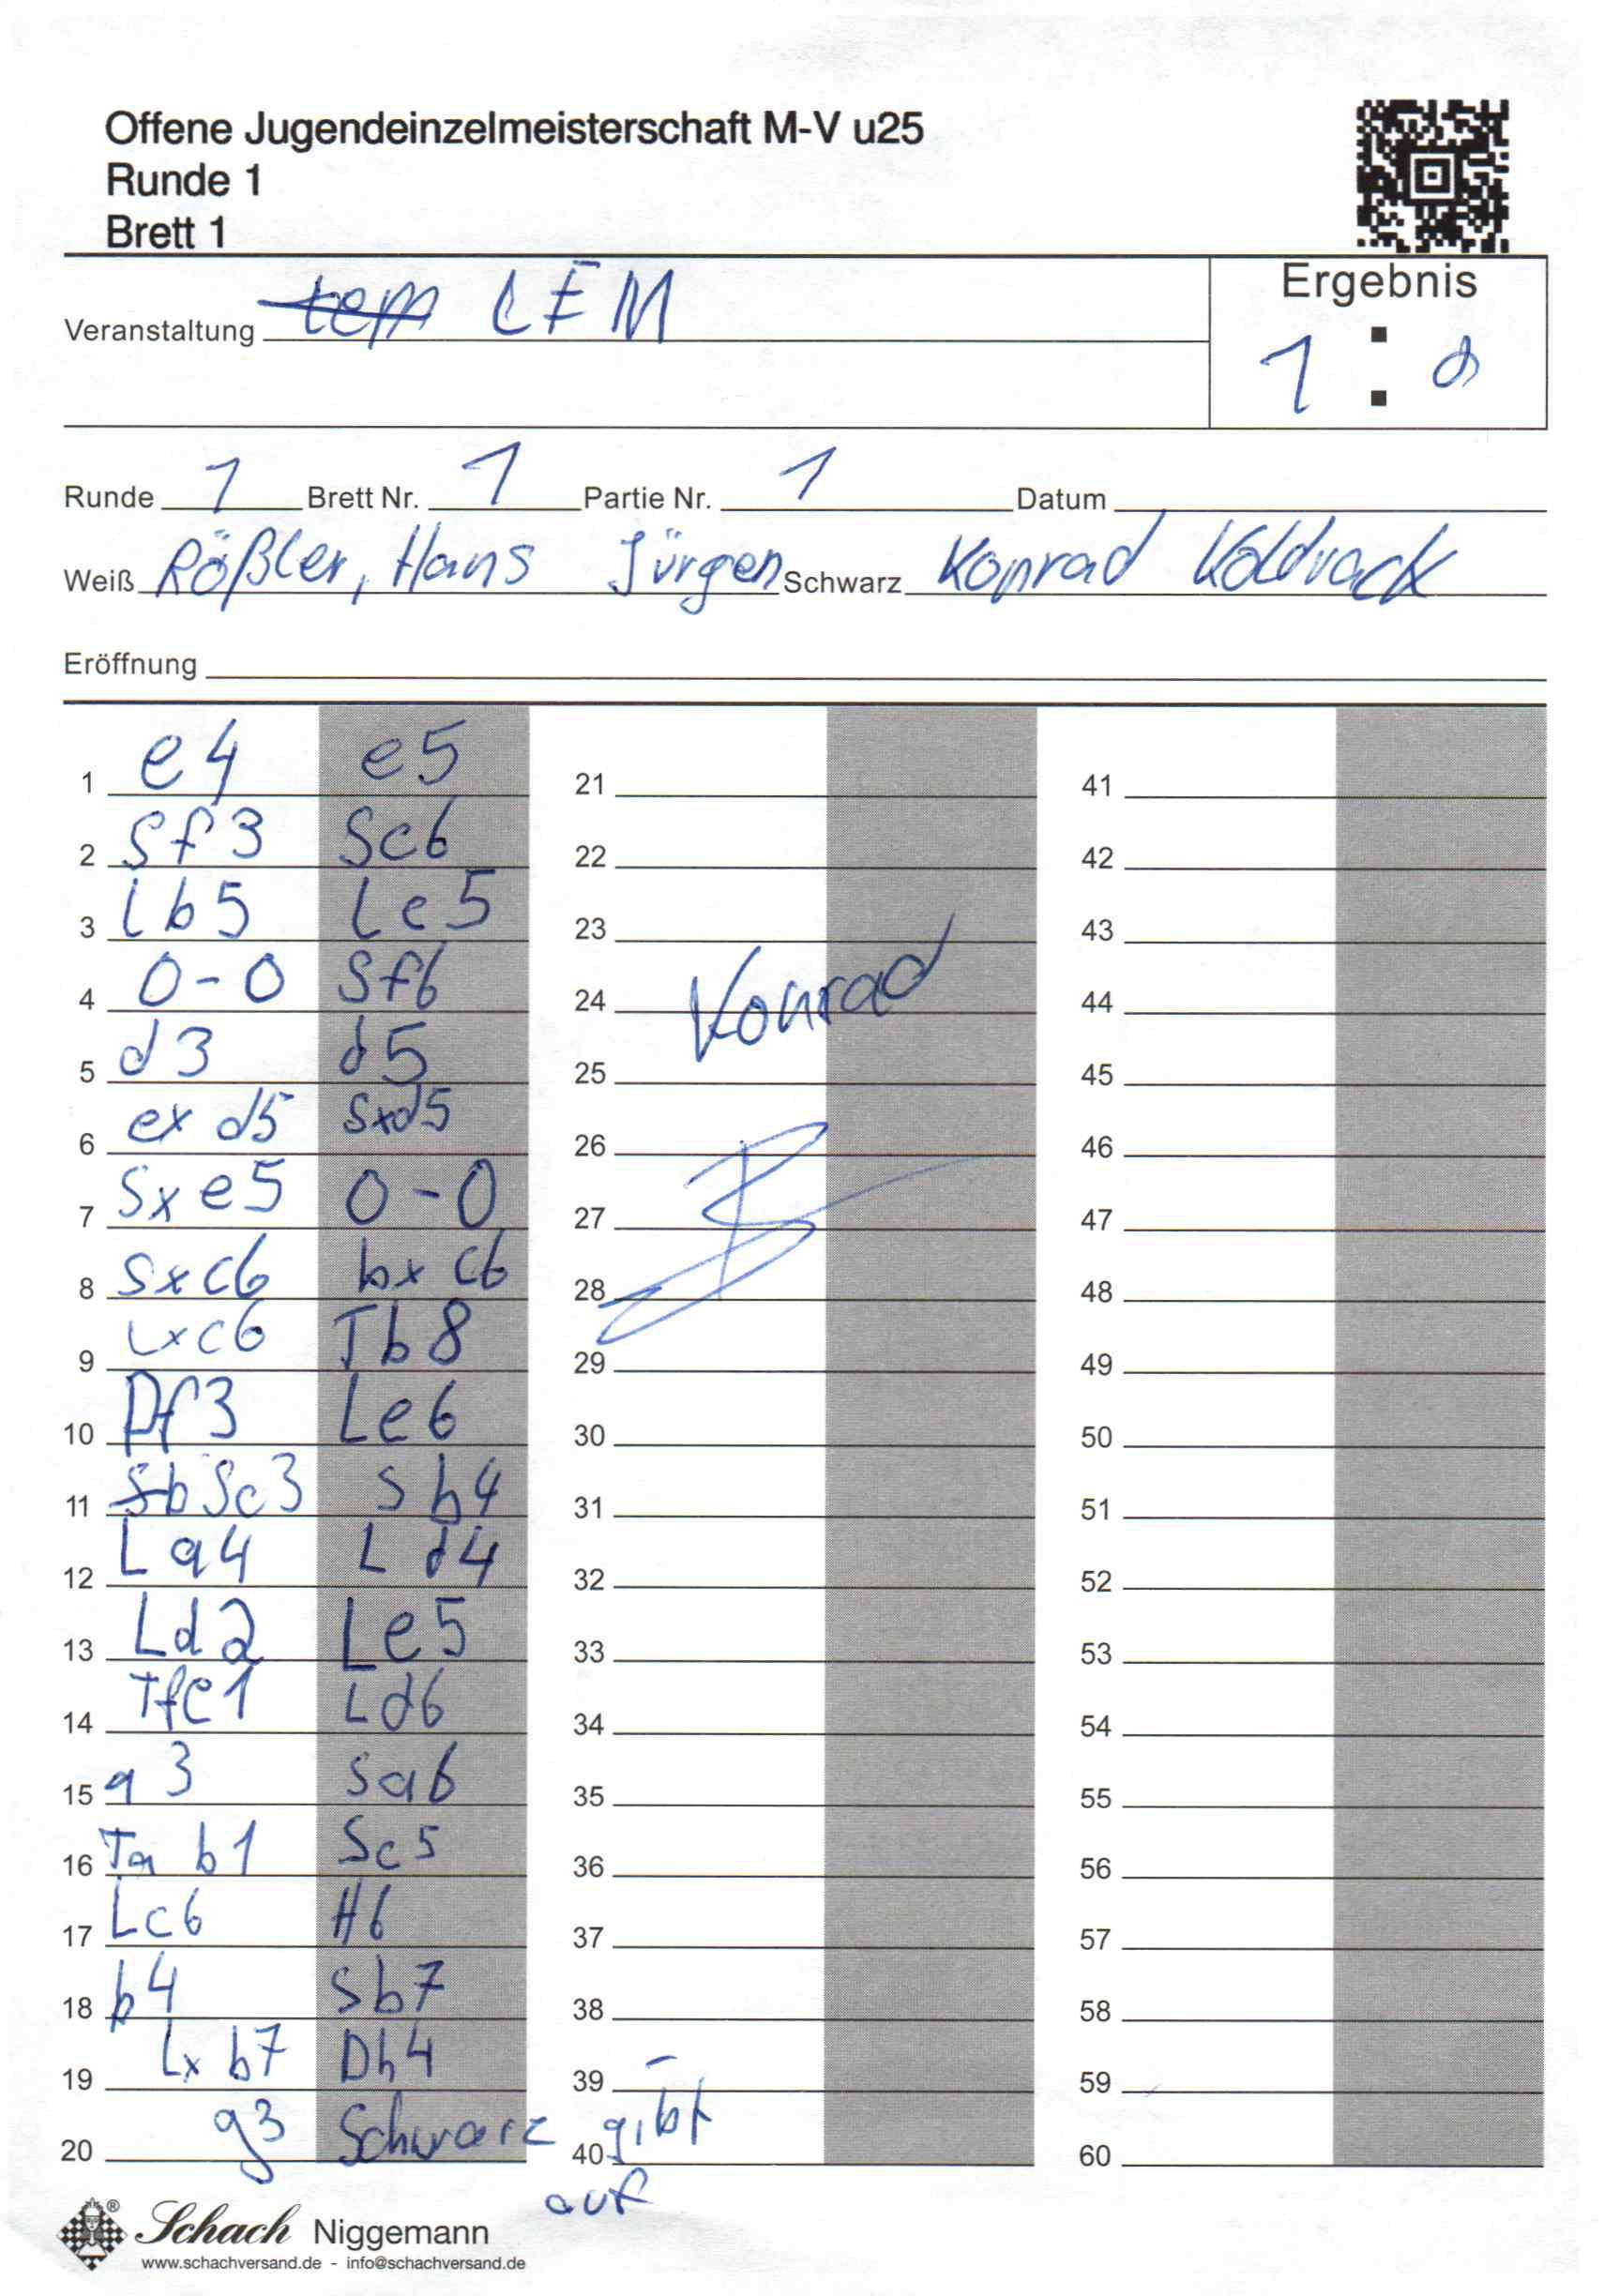 Offene Jugendeinzelmeisterschaft M-V u25
Runde 1
Brett 1
Veranstaltung tem LEM
Ergebnis
1 : 0
Runde 1 Brett Nr. 1 Partie Nr. 1 Datum
Weiß Rößler, Hans Jürgen Schwarz Konrad Koldrack
Eröffnung
1 e4 e5 21 41
2 Sf3 Sc6 22 42
3 Lb5 Lc5 23 43
4 0-0 Sf6 24 Konrad 44
5 d3 d5 25 45
6 exd5 Sxd5 26 46
7 Sxe5 0-0 27 47
8 Sxc6 bxc6 28 48
9 Lxc6 Tb8 29 49
10 Df3 Le6 30 50
11 Sb Sc3 Sb4 31 51
12 La4 Ld4 32 52
13 Ld2 Le5 33 53
14 Tfe1 Ld6 34 54
15 a3 Sa6 35 55
16 Ta b1 Sc5 36 56
17 Lc6 H6 37 57
18 b4 Sb7 38 58
19 Lxb7 Dh4 39 59
20 g3 Schwarz gibt 40 60
auf
Schach Niggemann
www.schachversand.de - info@schachversand.de